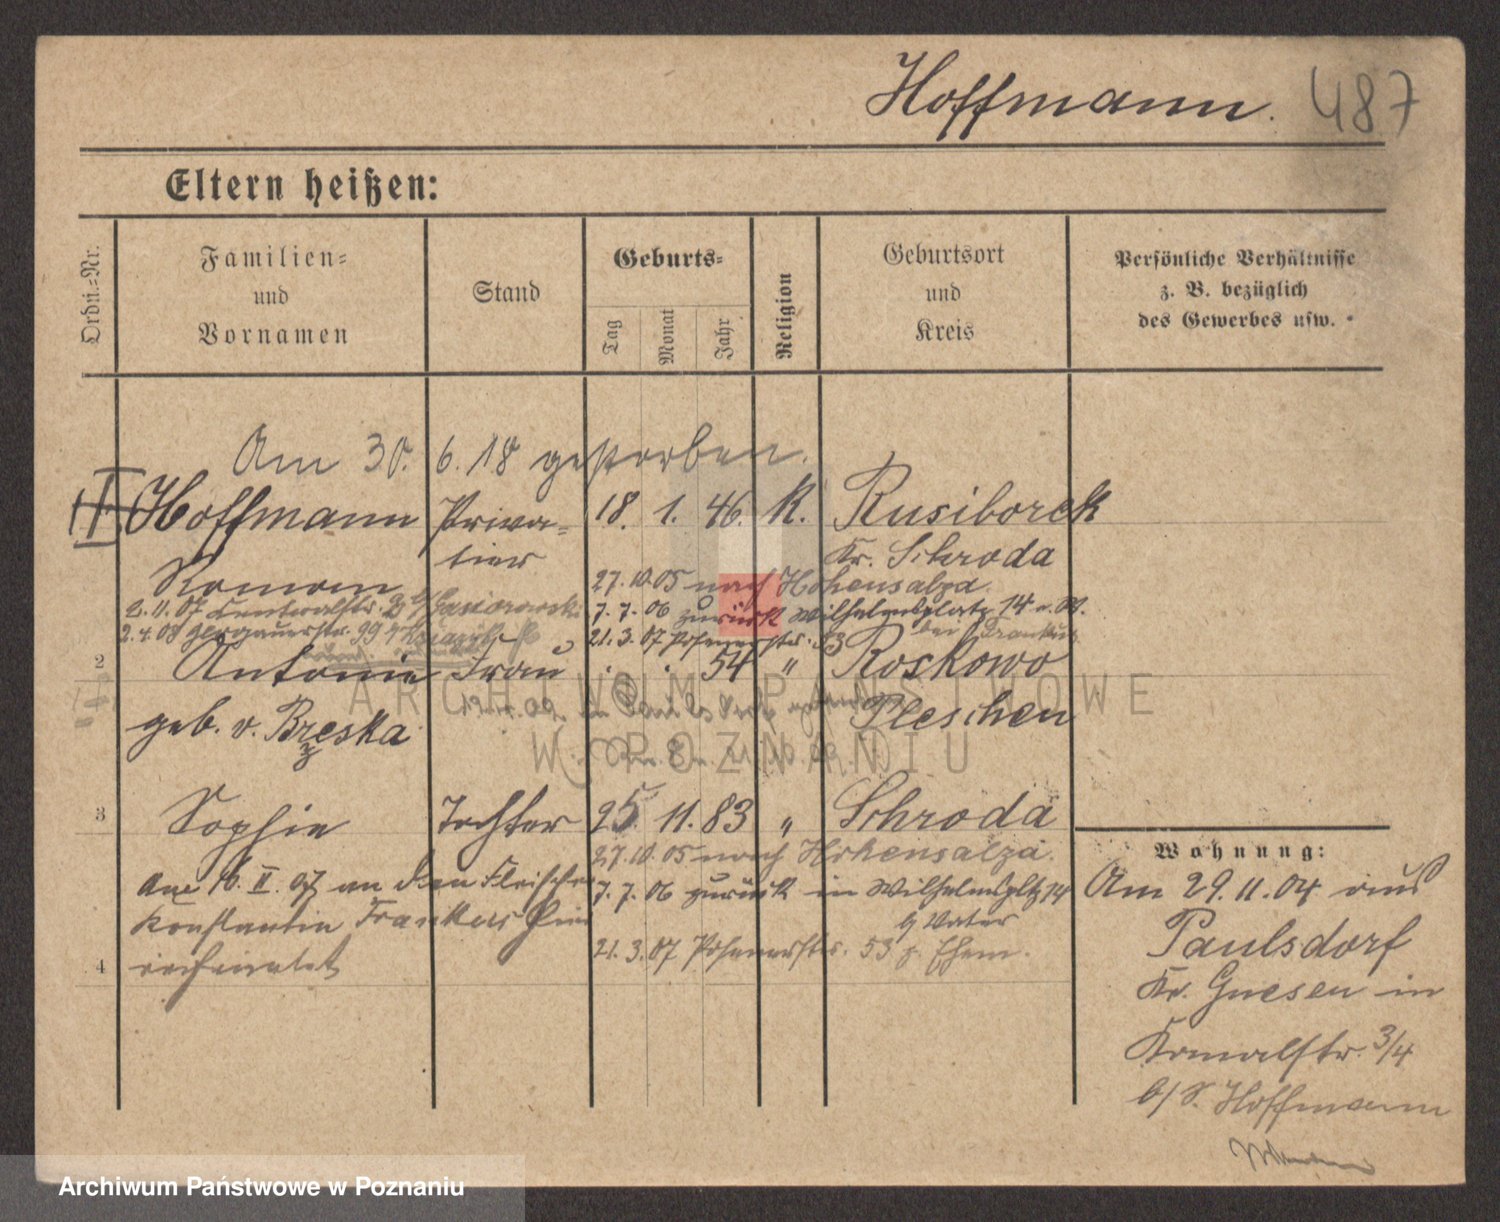 Hoffmann. 487
Eltern heißen:
Ordn.-Nr.
Familien=
und
Vornamen
Stand
Geburts=
Tag
Monat
Jahr
Religion
Geburtsort
und
Kreis
Persönliche Verhältnisse
z. B. bezüglich
des Gewerbes usw.
Am 30. 6. 18 gestorben.
I Hoffmann Priva= 18. 1. 46. K. Rusiborek
tier Kr. Schroda
Roman 27. 10. 05 nach Hohensalza
2. 11. 07 Gasiorowski 7. 7. 06 zurück Wilhelmsplatz 14
2. 4. 08 Glogauerstr. 99 21. 3. 07 Posenerstr. 53
2 Antonie Frau 54 " Roskowo
geb. v. Brzeska Pleschen
3 Sophie Tochter 25. 11. 83 " Schroda
27. 10. 05 nach Hohensalza.
Am 16. II. 07 an den Fleischer 7. 7. 06 zurück in Wilhelmspltz 14
Konstantin b/ Vater
21. 3. 07 Posenerstr. 53 z. Ehem.
4 verheiratet
Wohnung:
Am 29. 11. 04 aus
Paulsdorf
Kr. Gnesen in
Kanalstr. 3/4
b/ S. Hoffmann
ARCHIWUM PAŃSTWOWE
W POZNANIU
Archiwum Państwowe w Poznaniu